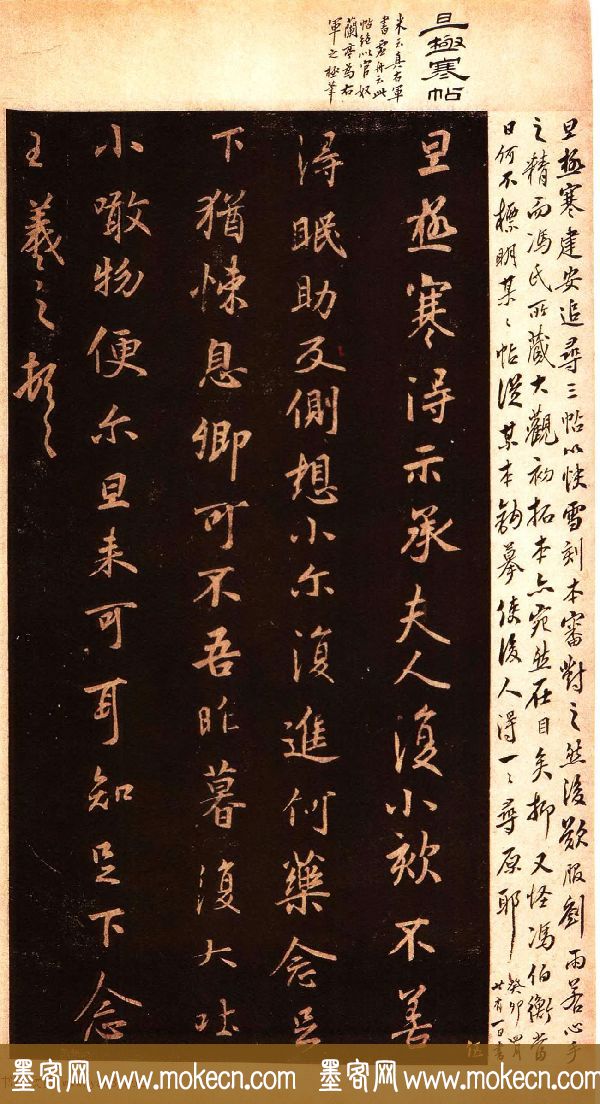 旦極寒帖
米云真右軍
書虛舟云此
帖絕似官奴
蘭亭為右
軍之極筆
旦極寒建安追尋三帖以快雪刻本審對之然後歎服劉雨若心手
之精而馮氏所藏大觀初拓本亦宛然在目矣抑又怪馮伯衡當
日何不標明某〻帖從某本鉤摹使後人得一〻尋原耶
癸卯四月
廿有一日書
旦極寒得示承夫人復小欬不善
得眠助反側想小尔復進何藥念足
下猶悚息卿可不吾昨暮復大吐
小噉物便尔旦来可耳知足下念
王羲之頓〻
墨客网 www.mokecn.com 墨客网 www.mokecn.com